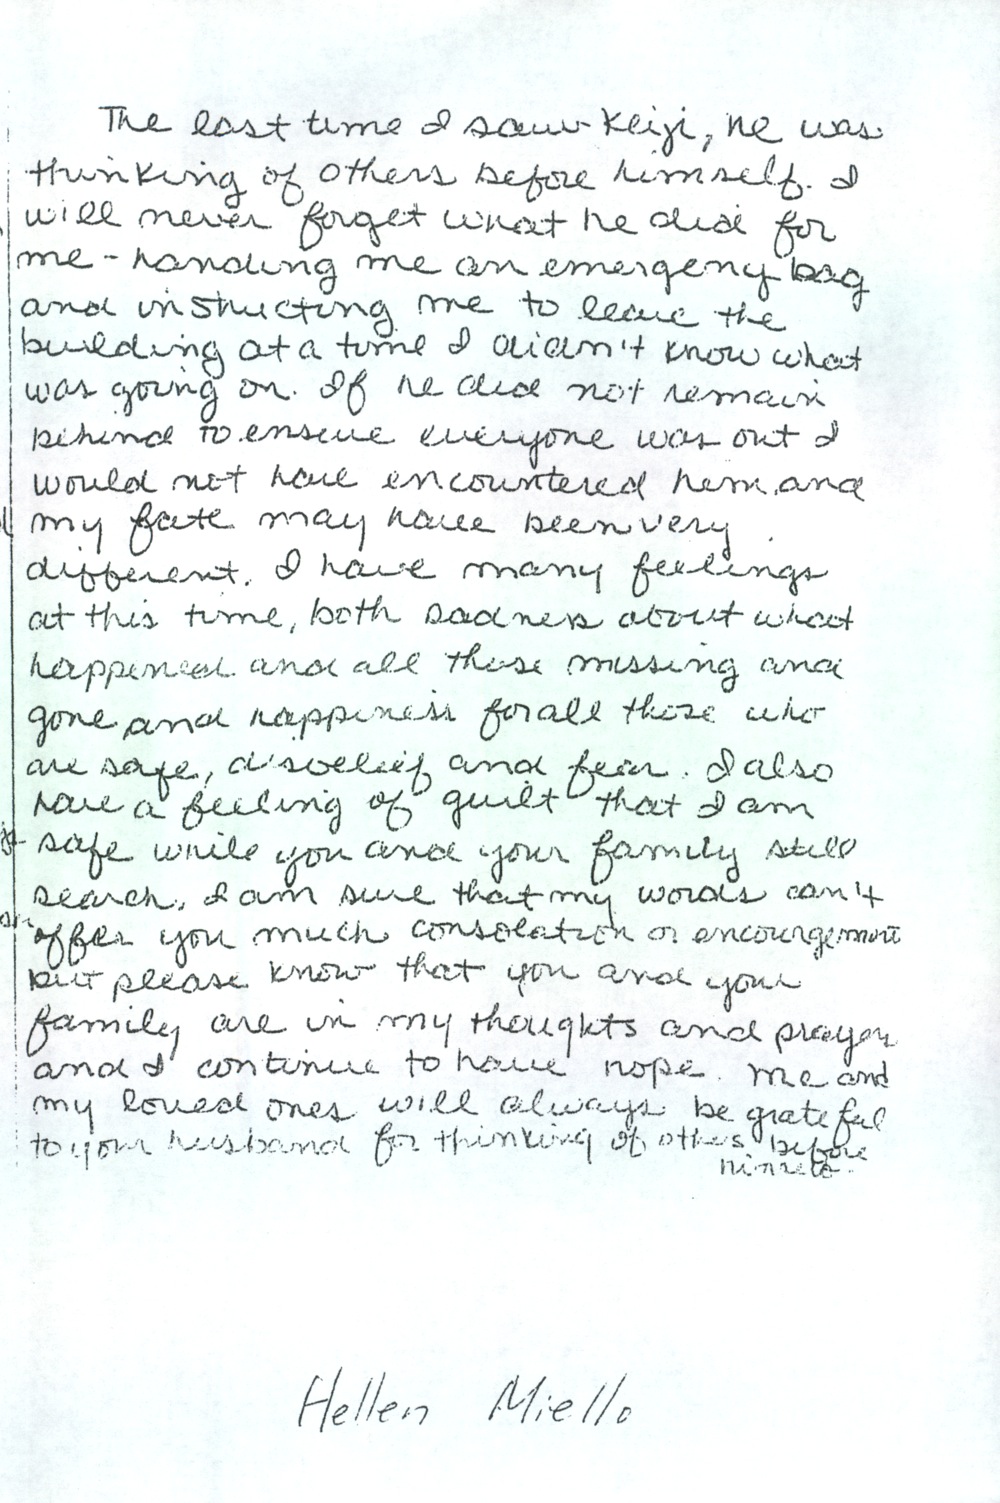 The last time I saw Keiji, he was
thinking of others before himself. I
will never forget what he did for
me - handing me an emergeny bag
and instructing me to leave the
building at a time I didn't know what
was going on. If he did not remain
behind to ensure everyone was out I
would not have encountered him, and
my fate may have been very
different. I have many feelings
at this time, both sadness about what
happened and all those missing and
gone, and happiness for all those who
are safe, disbelief and fear. I also
have a feeling of guilt that I am
safe while you and your family still
search. I am sure that my words can't
offer you much consolation or encourgement
but please know that you and your
family are in my thoughts and prayer
and I continue to have hope. Me and
my loved ones will always be grateful
to your husband for thinking of others before
himself.
Hellen Miello